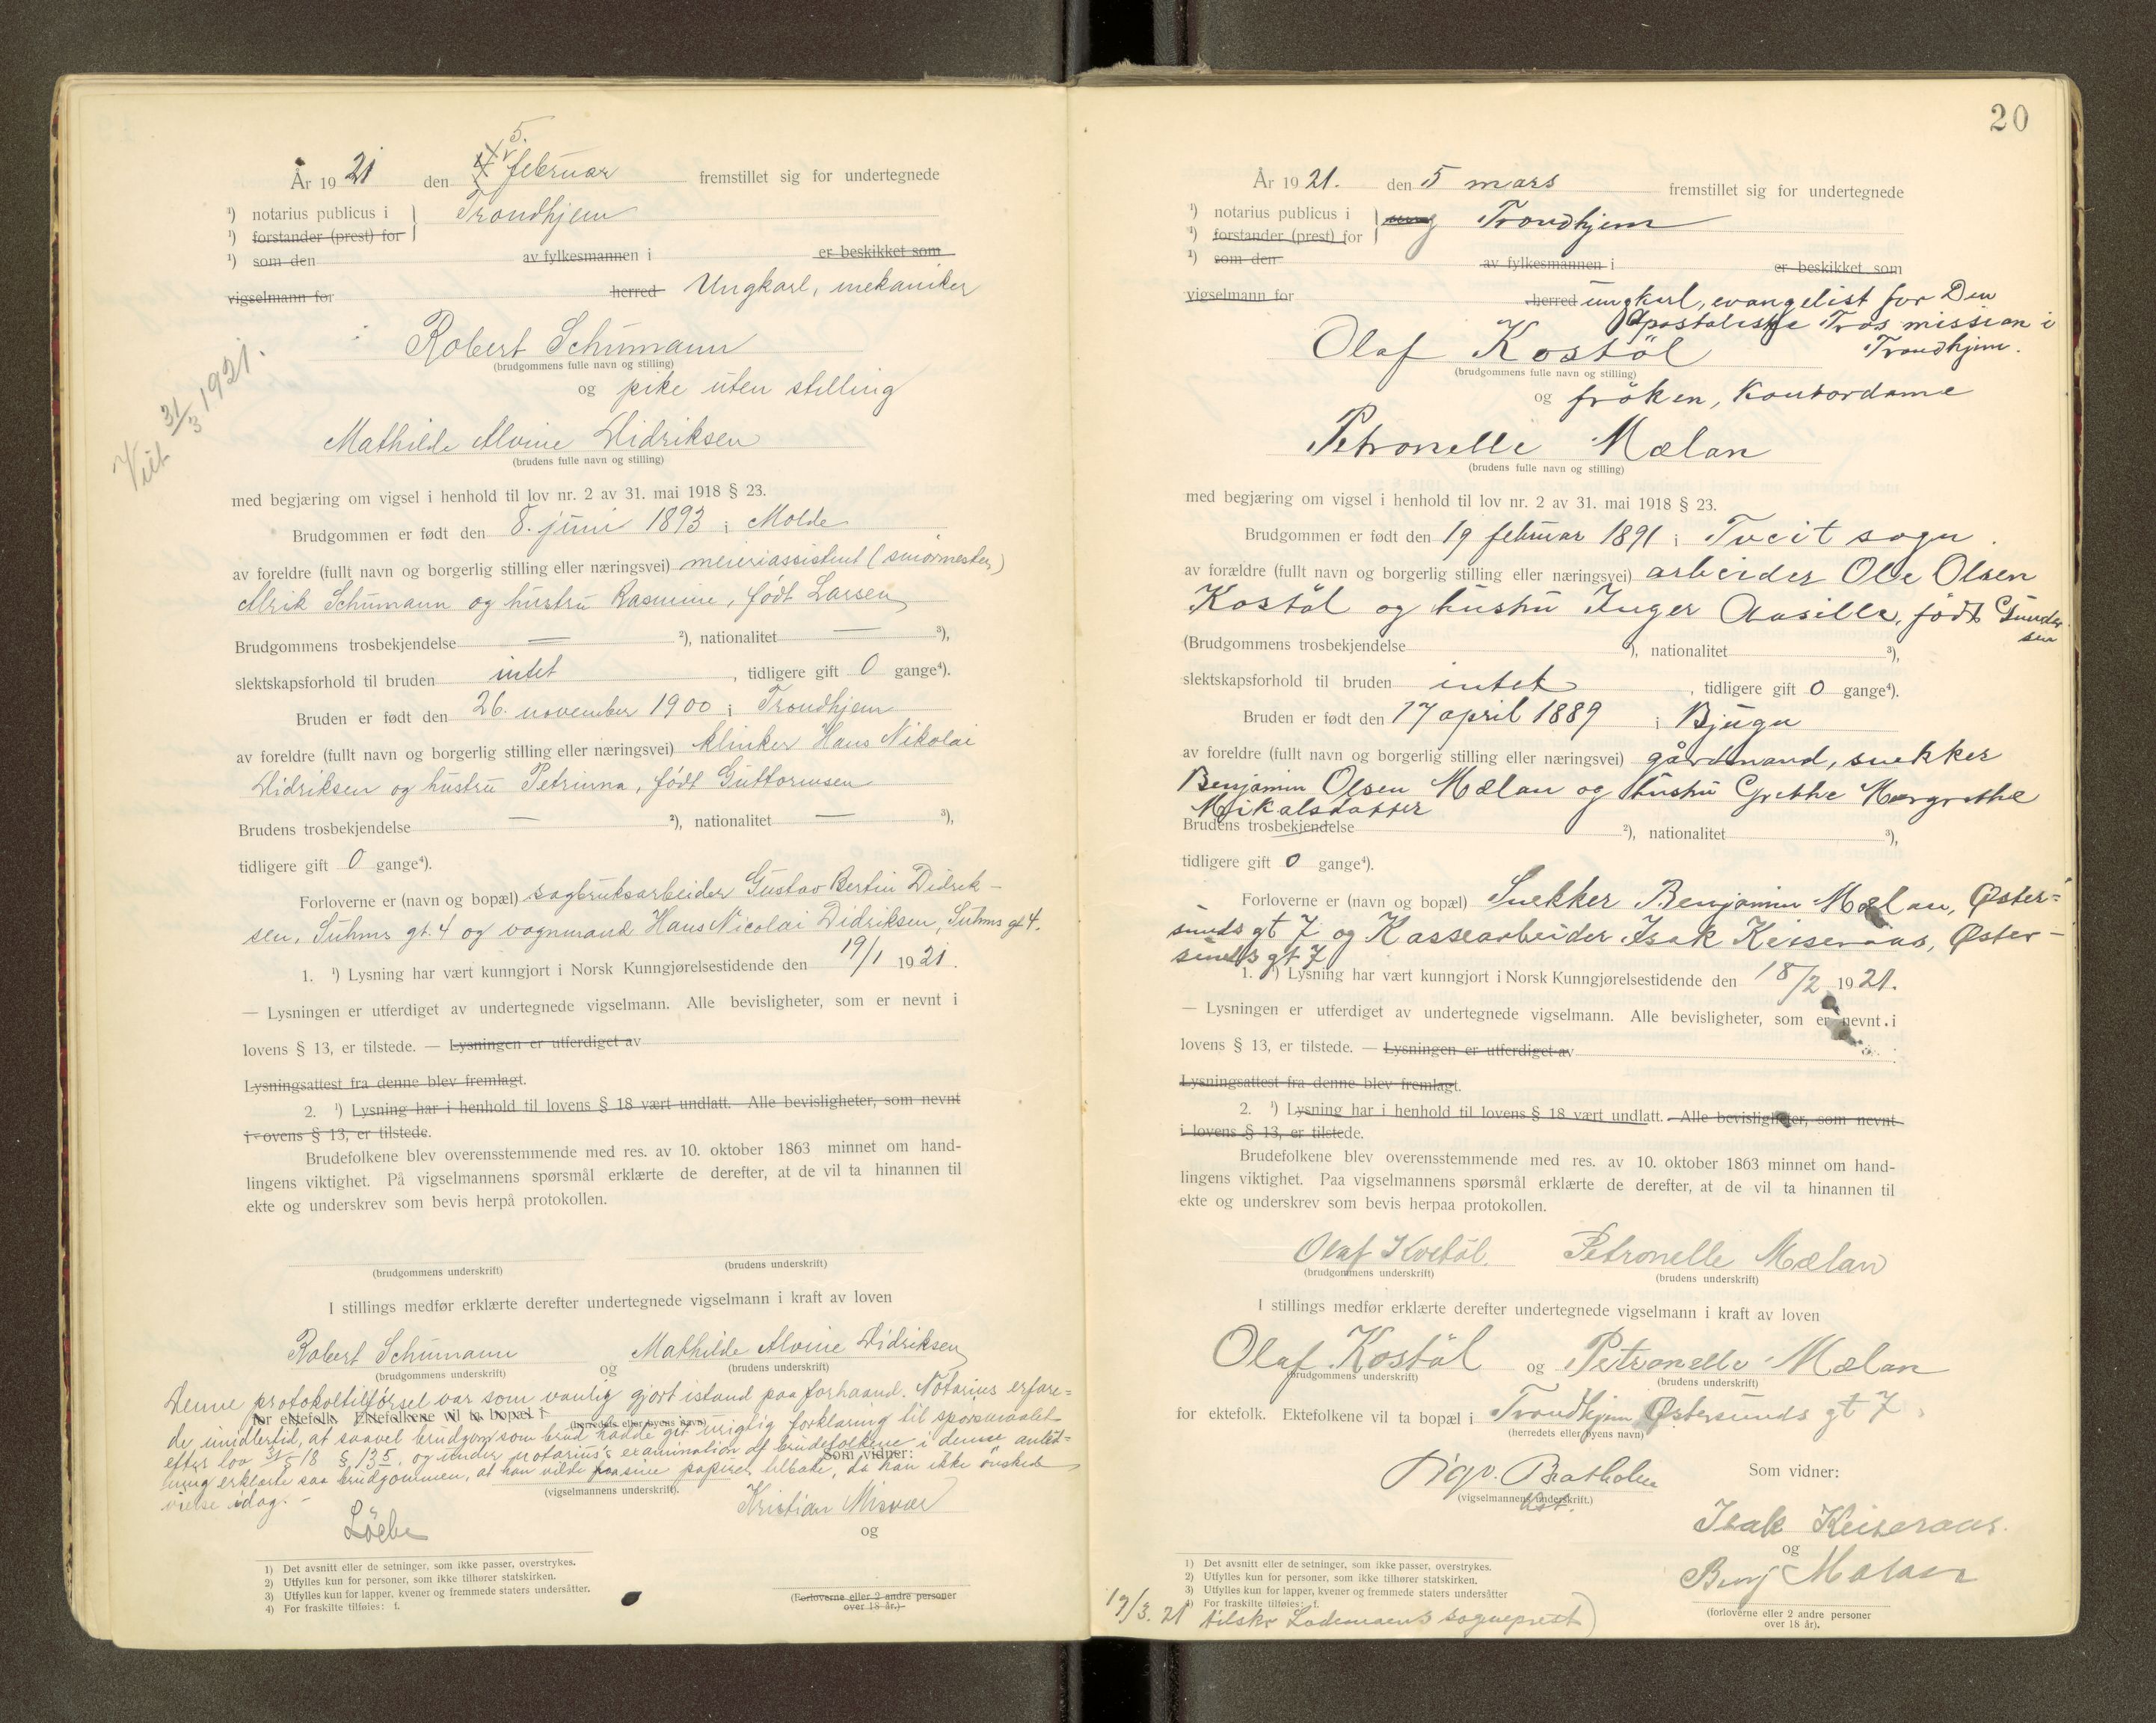 5.
År 1921 den 4 februar fremstillet sig for undertegnede
¹) notarius publicus i } Trondhjem
¹) forstander (prest) for
¹) som den av fylkesmannen i er beskikket som
vigselmann for herred Ungkarl, mekaniker
Robert Schumann
(brudgommens fulle navn og stilling)
og pike uten stilling
Viet 31/3 1921.
Mathilde Alvine Didriksen
(brudens fulle navn og stilling)
med begjæring om vigsel i henhold til lov nr. 2 av 31. mai 1918 § 23.
Brudgommen er født den 8. juni 1893 i Molde
av foreldre (fullt navn og borgerlig stilling eller næringsvei) meieriassistent (smörmester)
Alrik Schumann og hustru Rasmine, født Larsen
Brudgommens trosbekjendelse — ²), nationalitet — ³),
slektskapsforhold til bruden intet , tidligere gift 0 gange⁴).
Bruden er født den 26. november 1900 i Trondhjem
av foreldre (fullt navn og borgerlig stilling eller næringsvei) klinker Hans Nikolai
Didriksen og hustru Petrinna, født Guttormsen
Brudens trosbekjendelse — ²), nationalitet — ³),
tidligere gift 0 gange⁴).
Forloverne er (navn og bopæl) sagbruksarbeider Gustav Bertin Didrik-
sen, Suhms gt. 4 og vognmand Hans Nicolai Didriksen, Suhms gt 4.
1. ¹) Lysning har vært kunngjort i Norsk Kunngjørelsestidende den 19/1 1921.
— Lysningen er utferdiget av undertegnede vigselmann. Alle bevisligheter, som er nevnt i
lovens § 13, er tilstede. — Lysningen er utferdiget av
Lysningsattest fra denne blev fremlagt.
2. ¹) Lysning har i henhold til lovens § 18 vært undlatt. Alle bevisligheter, som nevnt
i ovens § 13, er tilstede.
Brudefolkene blev overensstemmende med res. av 10. oktober 1863 minnet om hand-
lingens viktighet. På vigselmannens spørsmål erklærte de derefter, at de vil ta hinannen til
ekte og underskrev som bevis herpå protokollen.
(brudgommens underskrift) (brudens underskrift)
I stillings medfør erklærte derefter undertegnede vigselmann i kraft av loven
Robert Schumann og Mathilde Alvine Didriksen
(brudgommens underskrift) (brudens underskrift)
Denne protokoltilförsel var som vanlig gjort istand paa forhaand. Notarius erfare=
for ektefolk. Ektefolkene vil ta bopæl i (herredets eller byens navn)
de imidlertid, at saavel brudgom som brud hadde git urigtig forklaring til spörsmaalet
efter lov 31/5 18 § 13 5. og under notarius's examination af brudefolkene i denne anled=
Som vidner:
ning erklærte saa brudgommen, at han vilde faa sine papirer tilbake, da han ikke önsket
vielse idag. -
(vigselmannens underskrift).
Kristian Misvær
og
1) Det avsnitt eller de setninger, som ikke passer, overstrykes.
2) Utfylles kun for personer, som ikke tilhører statskirken.
3) Utfylles kun for lapper, kvener og fremmede staters undersåtter.
4) For fraskilte tilføies: f.
(Forloverne eller 2 andre personer
over 18 år.)
20
År 1921. den 5 mars fremstillet sig for undertegnede
¹) notarius publicus i } Trondhjem
¹) forstander (prest) for
¹) som den av fylkesmannen i er beskikket som
vigselmann for herred ungkarl, evangelist for Den
Apostoliske Tros mission i
Trondhjem.
Olaf Kostöl
(brudgommens fulle navn og stilling)
og fröken, Kontordame
Petronelle Mælan
(brudens fulle navn og stilling)
med begjæring om vigsel i henhold til lov nr. 2 av 31. mai 1918 § 23.
Brudgommen er født den 19 februar 1891 i Tveit sogn.
av forældre (fullt navn og borgerlig stilling eller næringsvei) arbeider Ole Olsen
Kostöl og hustru Inger Aasille, født Gunder
sen
(Brudgommens trosbekjendelse ²), nationalitet ³),
slektskapsforhold til bruden intet , tidligere gift 0 gange⁴).
Bruden er født den 17 april 1889 i Bjugn
av foreldre (fullt navn og borgerlig stilling eller næringsvei) gårdmand, snekker
Benjamin Olsen Mælan og hustru Grethe Margrethe
Mikalsdatter
Brudens trosbekjendelse ²), nationalitet ³),
tidligere gift 0 gange⁴).
Forloverne er (navn og bopæl) Snekker Benjamin Mælan, Øster=
sunds gt 7 og Kassearbeider Isak Keiseraas, Øster-
sunds gt 7
1. ¹) Lysning har vært kunngjort i Norsk Kunngjørelsestidende den 18/2 1921.
— Lysningen er utferdiget av undertegnede vigselmann. Alle bevisligheter, som er nevnt i
lovens § 13, er tilstede. — Lysningen er utferdiget av
Lysningsattest fra denne blev fremlagt.
2. ¹) Lysning har i henhold til lovens § 18 vært undlatt. Alle bevisligheter, som nevnt
i lovens § 13, er tilstede.
Brudefolkene blev overensstemmende med res. av 10. oktober 1863 minnet om hand-
lingens viktighet. Paa vigselmannens spørsmål erklærte de derefter, at de vil ta hinannen til
ekte og underskrev som bevis herpaa protokollen.
Olaf Kostöl. Petronelle Mælan
(brudgommens underskrift) (brudens underskrift)
I stillings medfør erklærte derefter undertegnede vigselmann i kraft av loven
Olaf Kostöl og Petronelle Mælan
(brudgommens underskrift) (brudens underskrift)
for ektefolk. Ektefolkene vil ta bopæl i Trondhjem Østersunds gt 7
(herredets eller byens navn)
Som vidner:
(vigselmannens underskrift.)
Isak Keiseraas.
og
Benj Mælan
1) Det avsnitt eller de setninger, som ikke passer, overstrykes.
2) Utfylles kun for personer, som ikke tilhører statskirken.
3) Utfylles kun for lapper, kvener og fremmede staters undersåtter
4) For fraskilte tilføies: f.
(forloverne eller 2 andre personer
over 18 år).
19/3. 21 tilskr Lademoens sogneprest